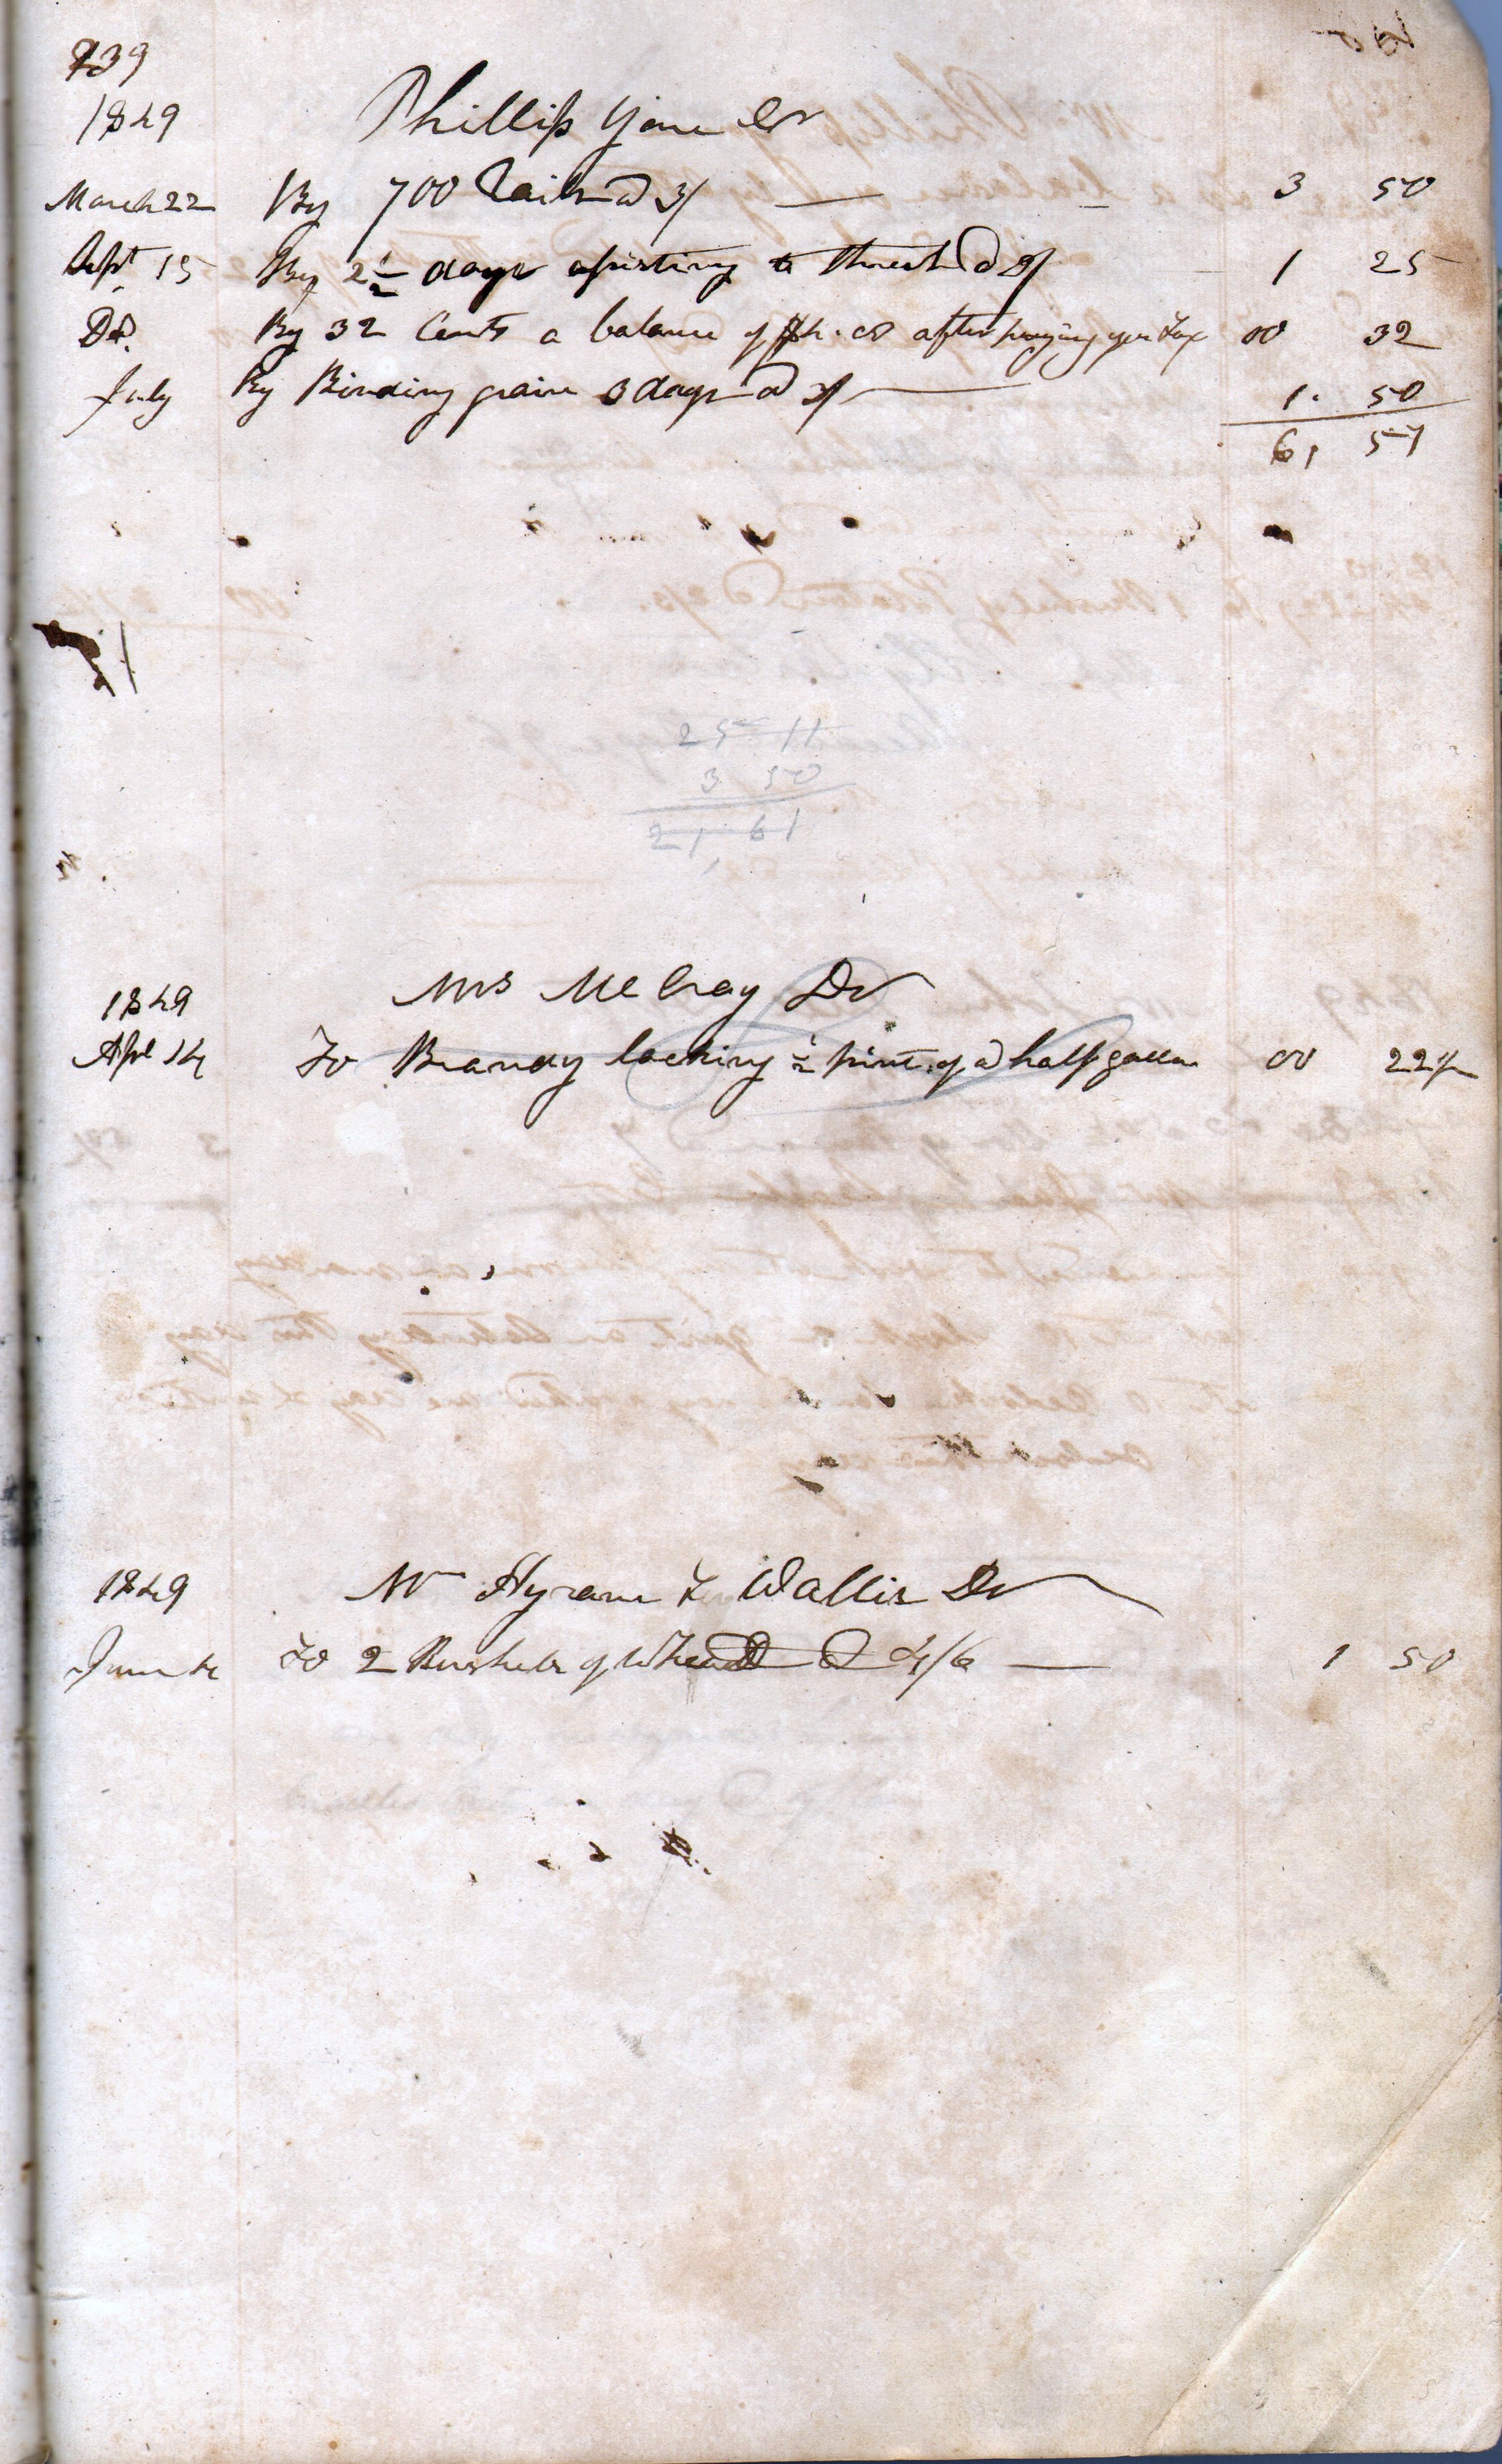 239
1849 Phillip Yone Cr
March 22 By 700 Rails @ 3/ 3 50
Sept 15 By 2 1/2 days assisting to thresh @ 3/ 1 25
Do. By 32 Cents a balance of after paying your Tax 00 32
July By Binding grain 3 days @ 3/ 1. 50
6, 57
25 11
3 50
21, 61
1849 Mrs McCray Dr
Apl 14 To Brandy lacking 1/2 pint of a half gallon 00 22 1/2
1849 Mr Hyram T Wallis Dr
June 4 To 2 Bushels of Wheat @ 4/6 1 50